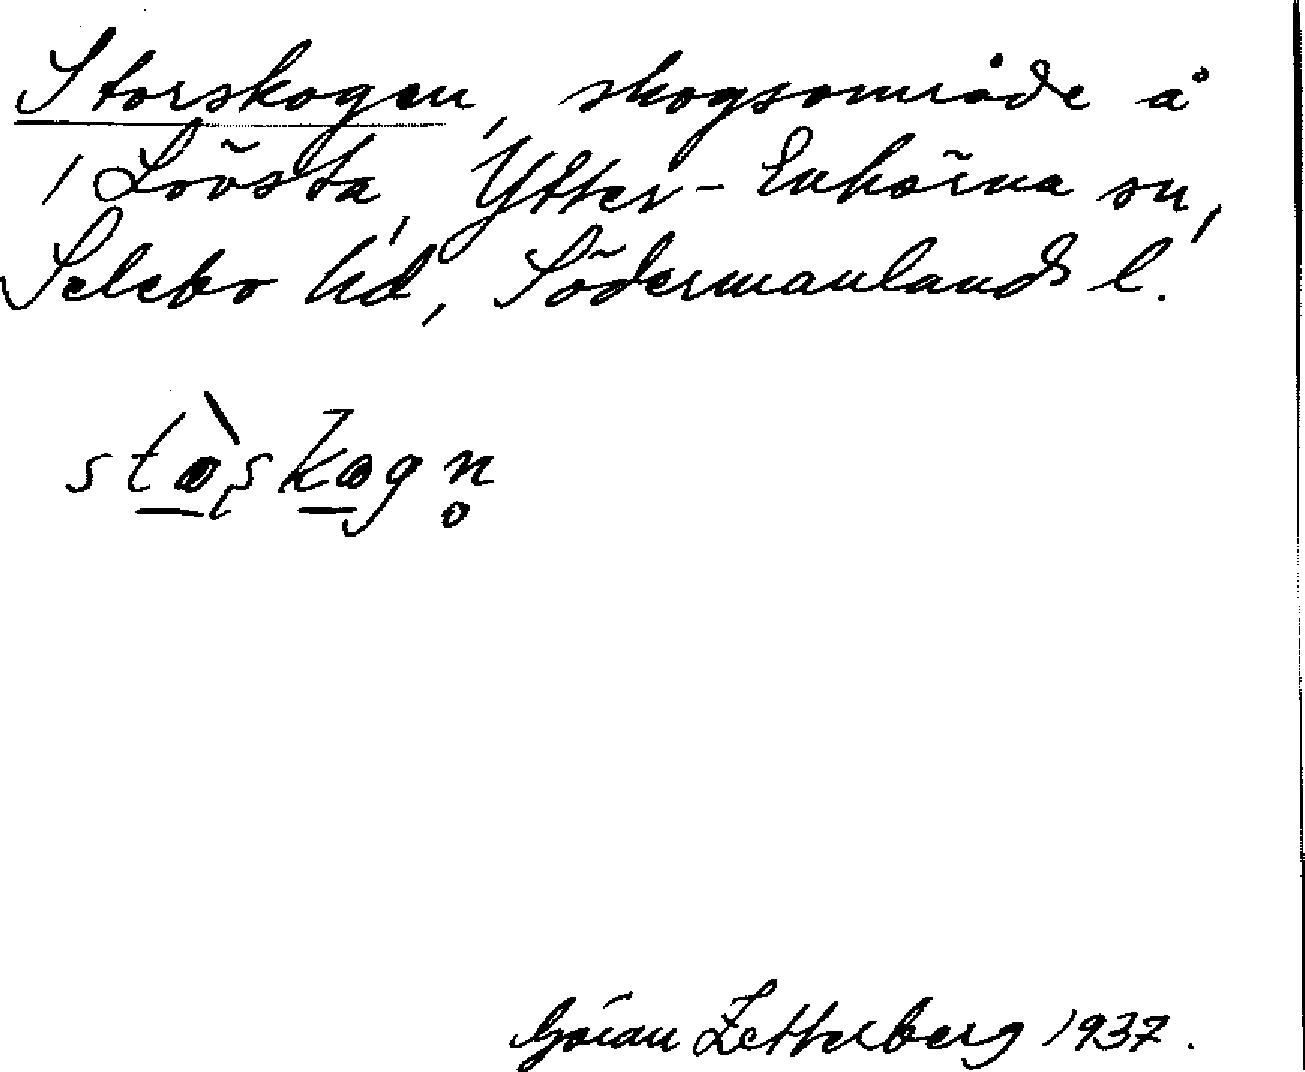 Storskogen, skogsområde å
1 Lövsta, Ytter-Enhörna sn,
Selebo hd, Södermanlands l.
stòskogn̥
Göran Zetterberg 1937.